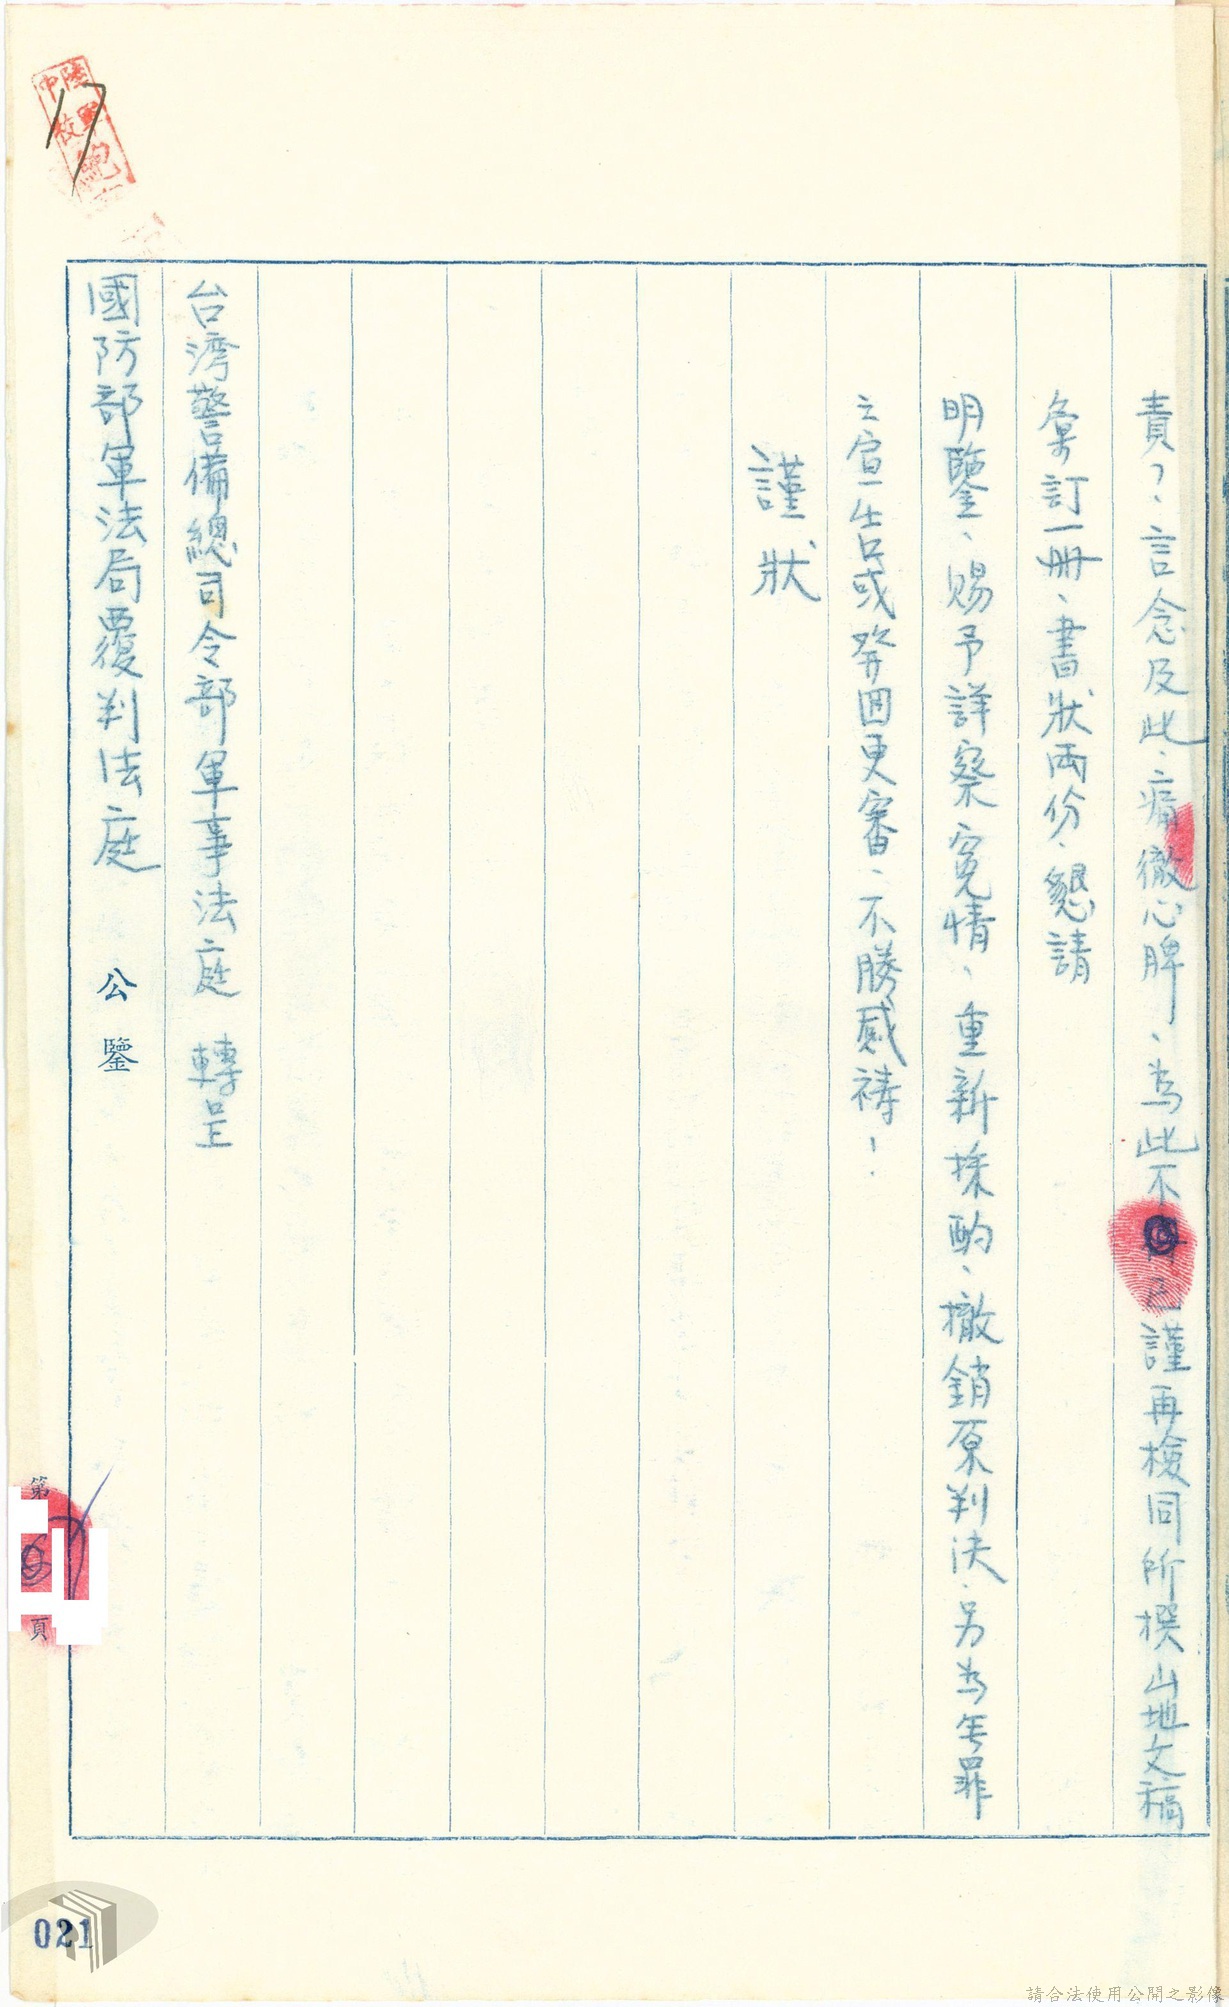 責了、言念及此、痛徹心脾、為此不謹再檢同所撰山地文稿
彙訂一冊、書狀兩份、懇請
明鑒、賜予詳察冤情、重新採酌、撤銷原判決、另為無罪
之宣告或發回更審、不勝感禱！
謹狀
台湾警備總司令部軍事法庭 轉呈
國防部軍法局覆判法庭 公鑒
第 頁
17
021
請合法使用公開之影像